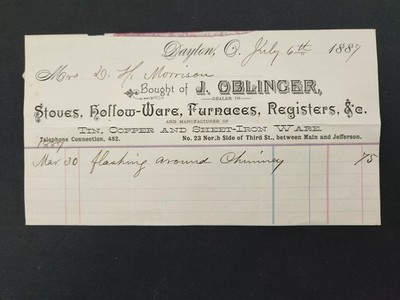 Dayton, O. July 6th 1887
Mrs D. H. Morrison
Bought of J. OBLINGER,
DEALER IN
Stoves, Hollow-Ware, Furnaces, Registers, &c.
AND MANUFACTURER OF
TIN, COPPER AND SHEET-IRON WARE.
Telephone Connection, 482. No. 23 North Side of Third St., between Main and Jefferson.
1887
Mar 30 flashing around Chimney 75